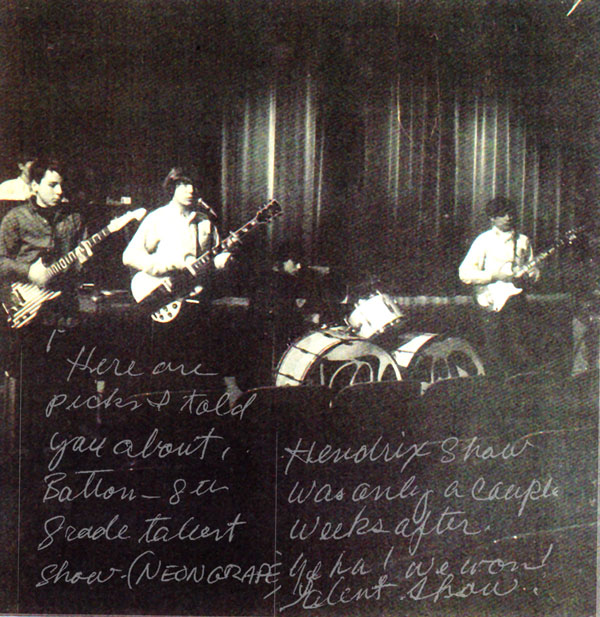 Here are
picks I told
you about,
Batton - 8th
grade talent
show - (NEON GRAPE)
Hendrix Show
was only a couple
weeks after.
Ye ha! we won!
Talent Show.